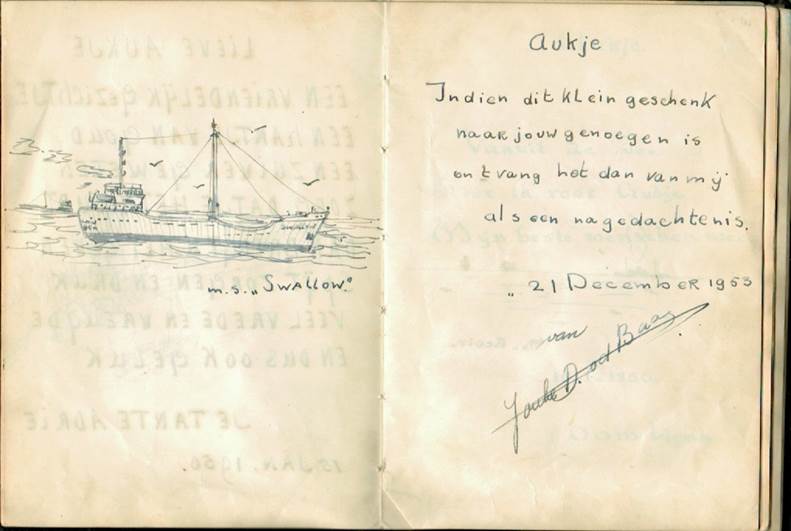 m.s. „SWALLOW."
Aukje
Indien dit klein geschenk
naar jouw genoegen is
ontvang het dan van mij
als een nagedachtenis.
„ 21 December 1953
van